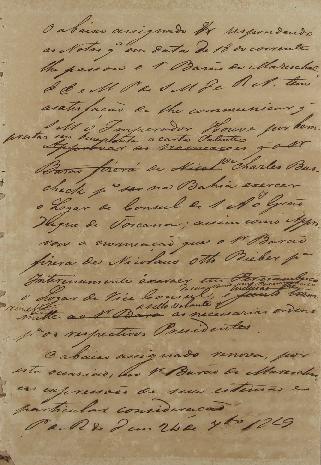 O abaixo assignado respondendo
as Notas q̃ em data de 18 do corrente
lhe passou o Sr Barão de Mareschal,
E. E. M. P. de S. M. I. R. A. tem
a satisfação de lhe communicar q̃
S. M. o Imperador Houve por bem
prestar seu Imperial a carta Patente
Charles Bus-
check pa na Bahia exercer
o Logar de Consul de S. A. o Grão
Duque de Toscana; assim como Appro-
vou a nomeação que o Sr Barão
fizera de Nicolao Otto Bieber pa
Interinamente exercer em Pernambuco
o logar de Vice Consul,
as necessarias ordens
pa os respectivos Presidentes
O abaixo assignado renova por
esta occasião, ao Sr Barão de Mareschal
as expressões de sua estima e
particular consideração
P. do R. de Janro 24 de 7bro 1829